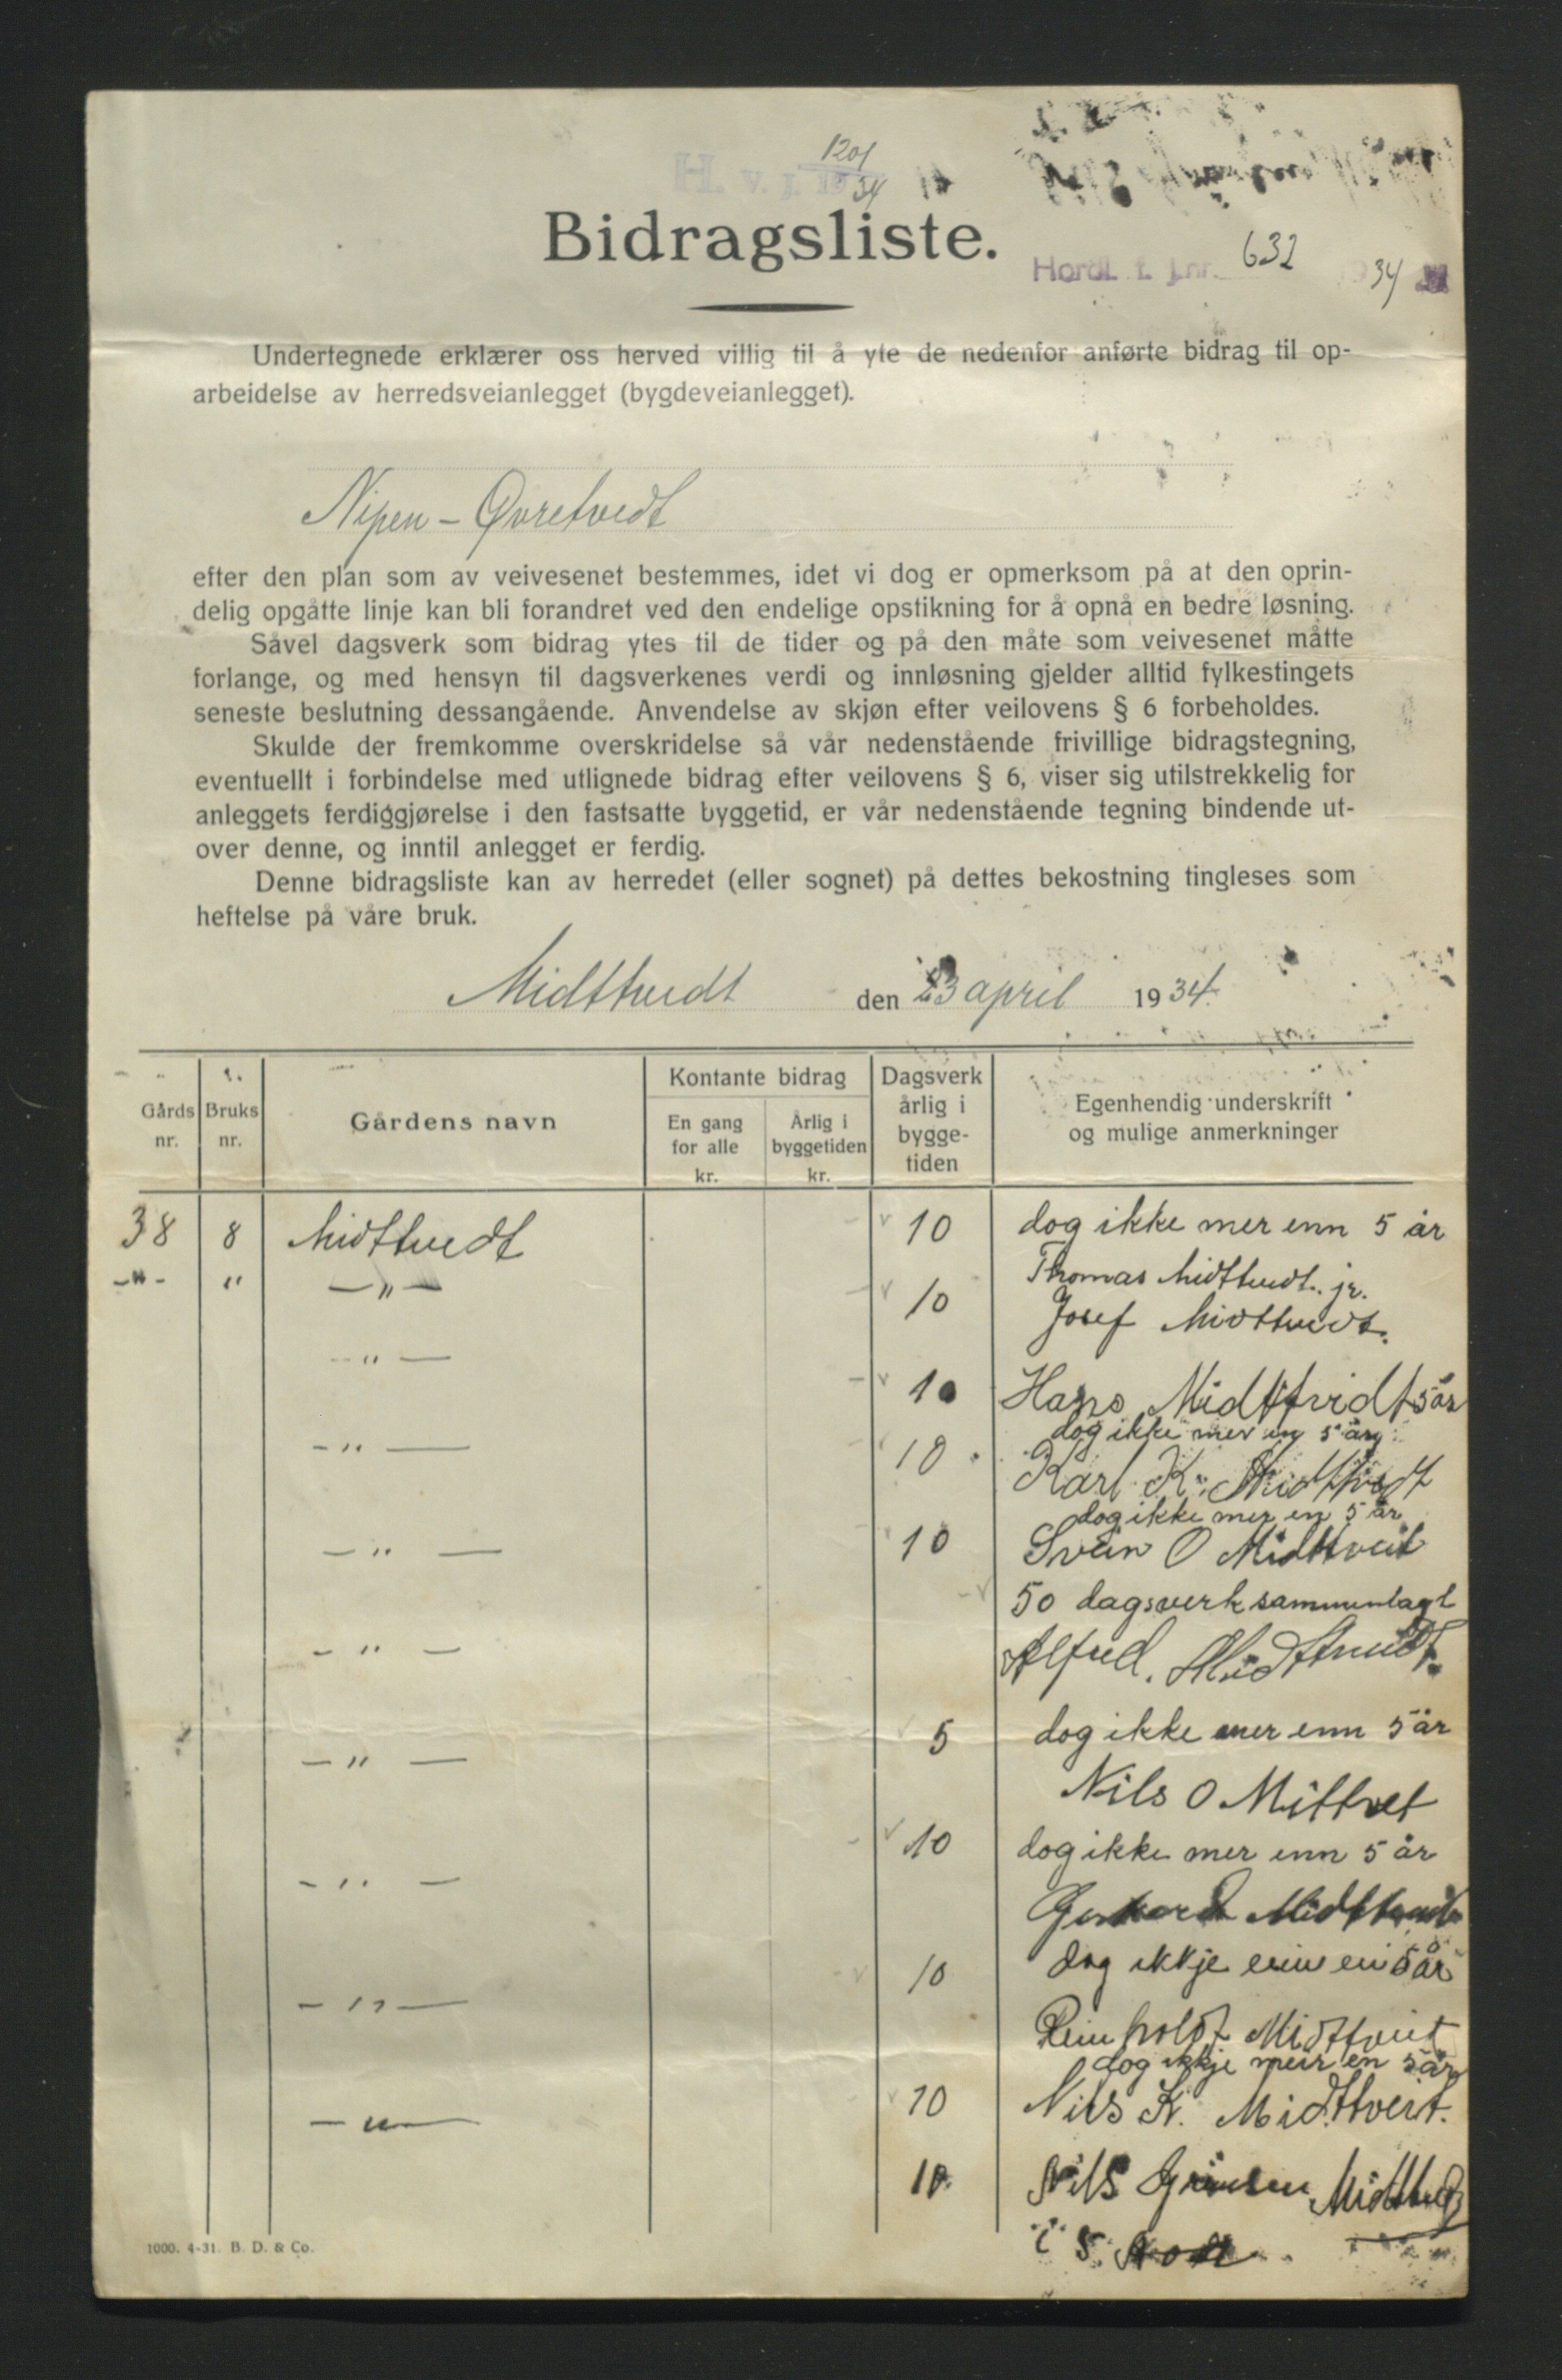 1201
H. v. j. 19 34
Bidragsliste.
Hordl. f. j.nr. 632 34
Undertegnede erklærer oss herved villig til å yte de nedenfor anførte bidrag til op-
arbeidelse av herredsveianlegget (bygdeveianlegget).
Nipen - Øvretvedt
efter den plan som av veivesenet bestemmes, idet vi dog er opmerksom på at den oprin-
delig opgåtte linje kan bli forandret ved den endelige opstikning for å opnå en bedre løsning.
Såvel dagsverk som bidrag ytes til de tider og på den måte som veivesenet måtte
forlange, og med hensyn til dagsverkenes verdi og innløsning gjelder alltid fylkestingets
seneste beslutning dessangående. Anvendelse av skjøn efter veilovens § 6 forbeholdes.
Skulde der fremkomme overskridelse så vår nedenstående frivillige bidragstegning,
eventuellt i forbindelse med utlignede bidrag efter veilovens § 6, viser sig utilstrekkelig for
anleggets ferdiggjørelse i den fastsatte byggetid, er vår nedenstående tegning bindende ut-
over denne, og inntil anlegget er ferdig.
Denne bidragsliste kan av herredet (eller sognet) på dettes bekostning tingleses som
heftelse på våre bruk.
Midttvedt den 23 april 1934.
Gårds nr. Bruks nr. Gårdens navn Kontante bidrag En gang for alle kr. Årlig i byggetiden kr. Dagsverk årlig i bygge-tiden Egenhendig underskrift og mulige anmerkninger
38 8 Midttvedt 10 dog ikke mer enn 5 år
Thomas Midttvedt. jr.
-"- " -"- 10 Josef Midttvedt.
-"- 10 Hans Midttvedt 5 år
dog ikke mer en 5 år
-"- 10 Karl K. Midttvedt
dog ikke mer en 5 år
-"- 10 Svein O Midttveit
50 dagsverk sammenlagt
-"- Alfred. Midttvedt.
5 dog ikke mer enn 5 år
-"- Nils O Mittvet
10 dog ikke mer enn 5 år
-"- Midttvedt
10 dog ikkje enn 5 år
-"- Reinholdt Midttveit
dog ikkje meir en 5 år
10 Nils K. Midttveit.
-"-
10. Nils Midttvedt
i 5
1000. 4-31. B. D. & Co.